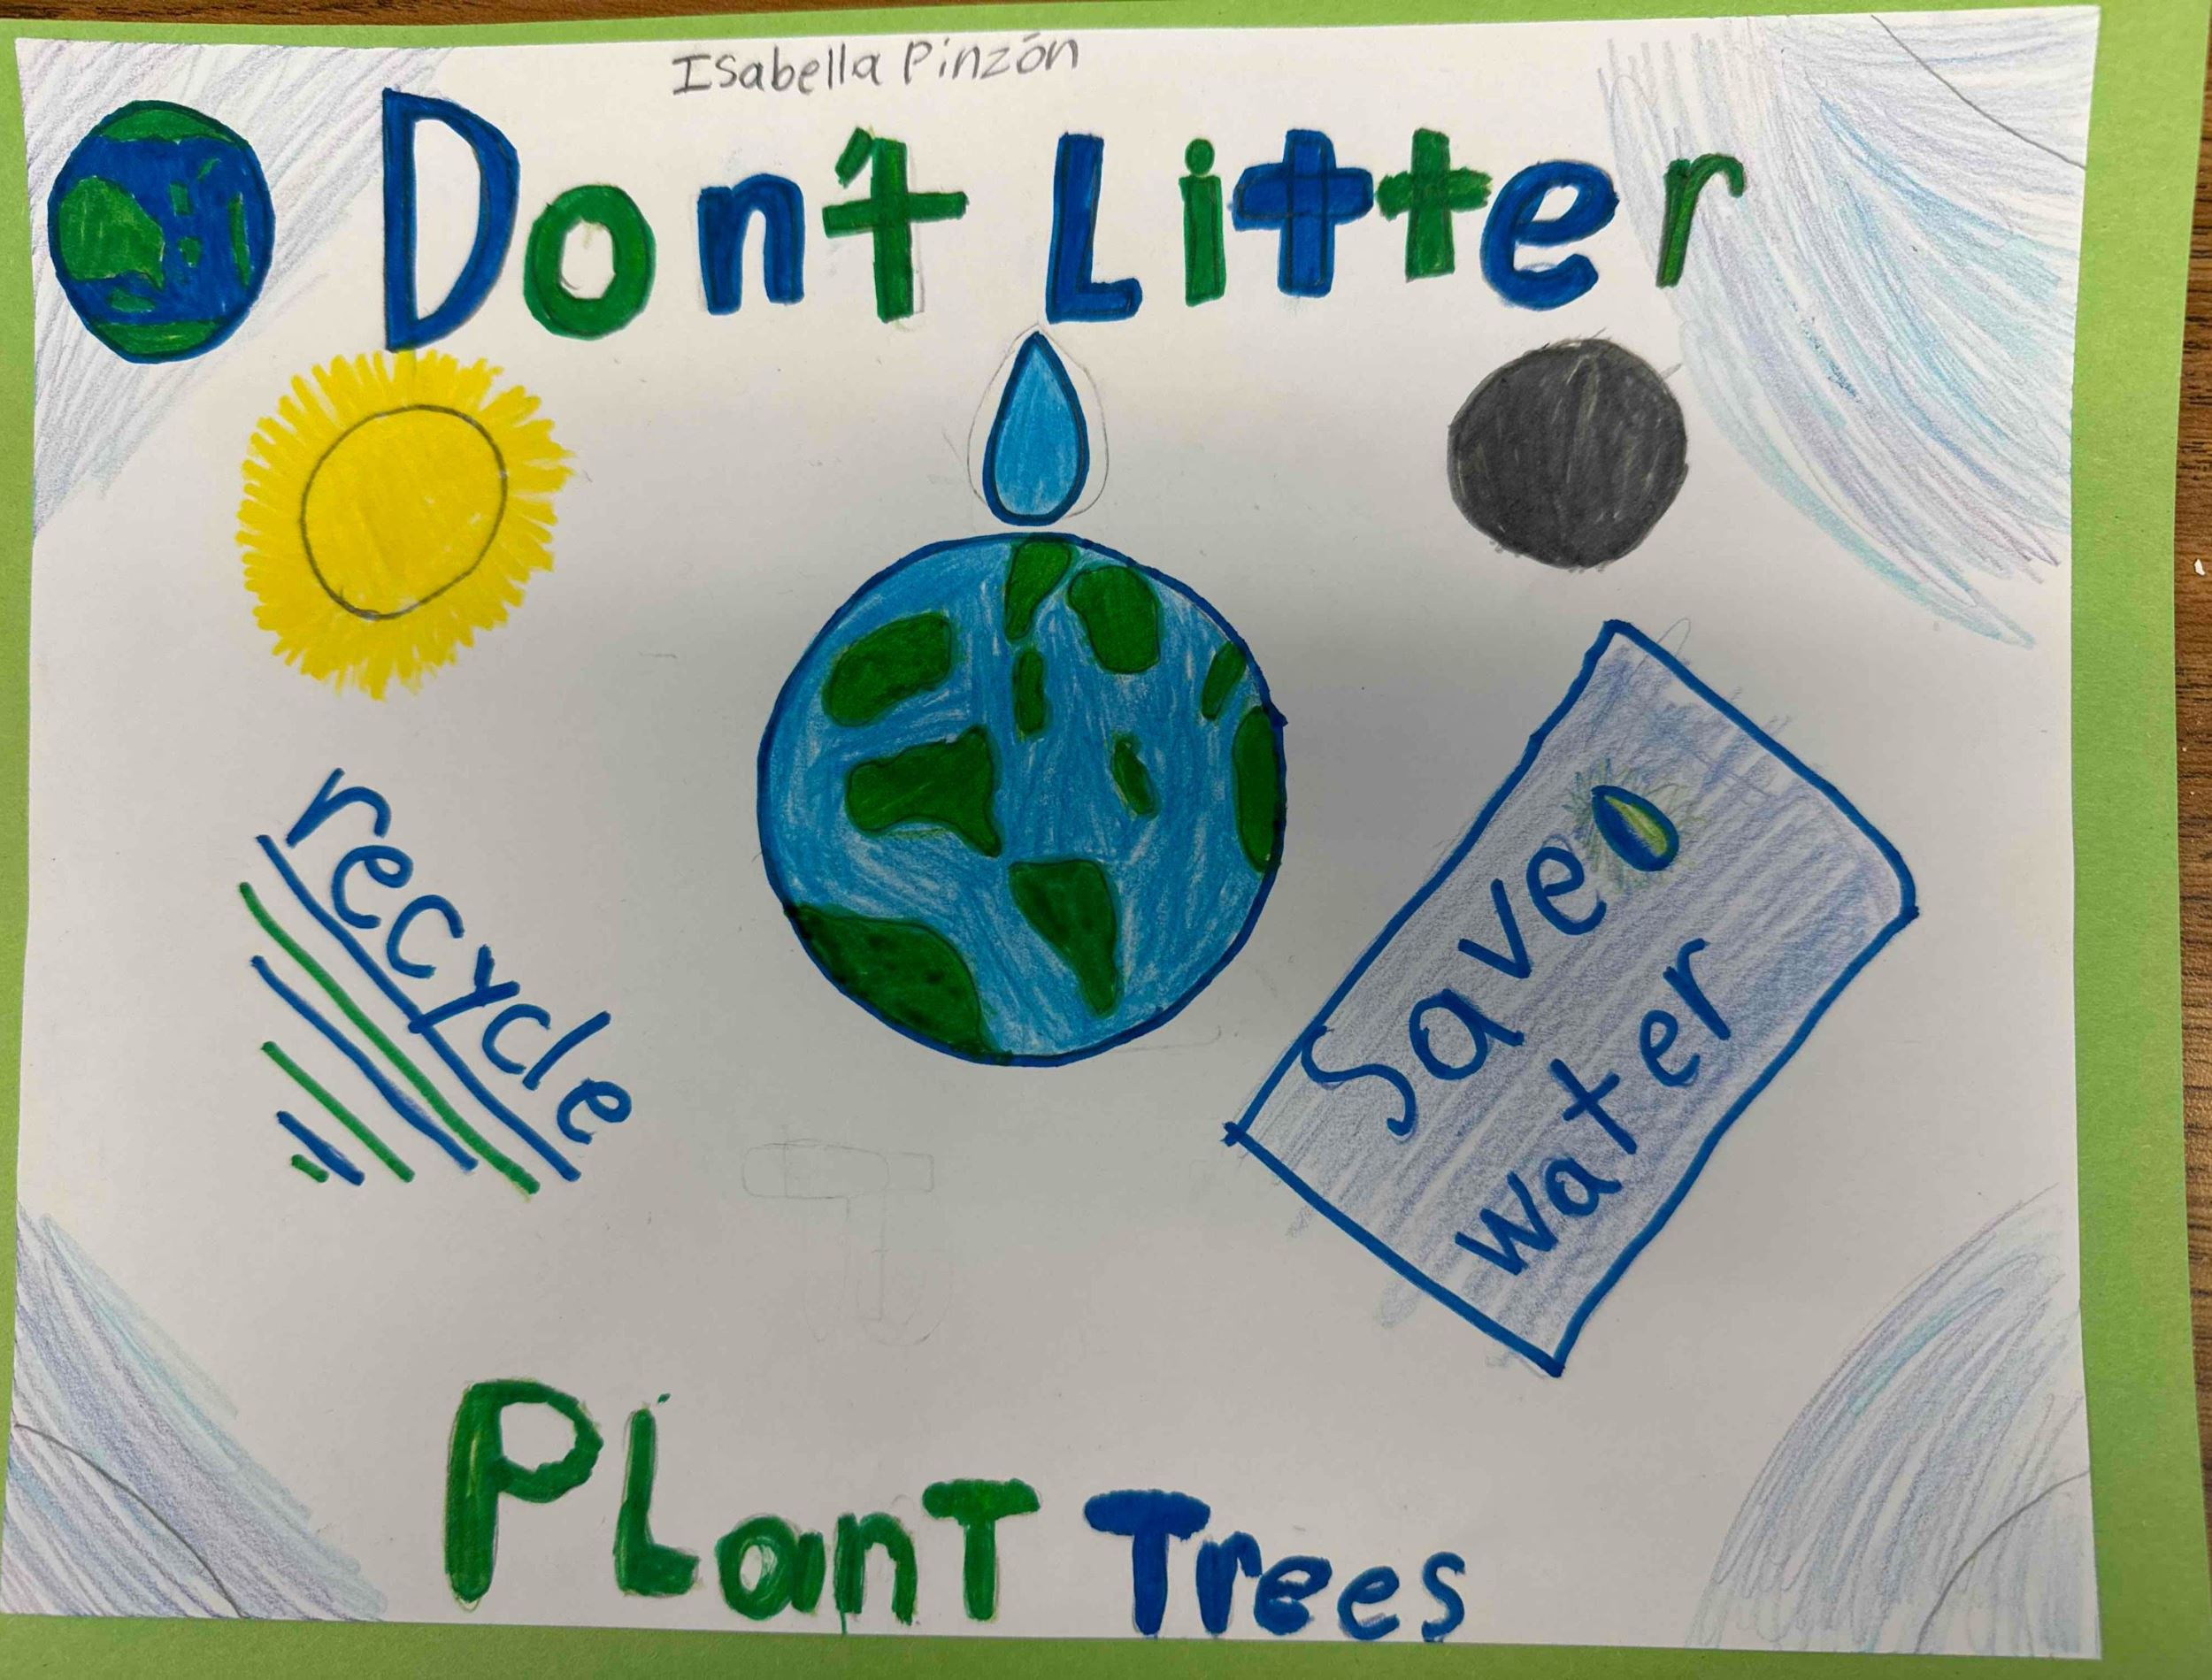 Isabella Pinzón
Don't Litter
recycle
Save
water
PLanT Trees